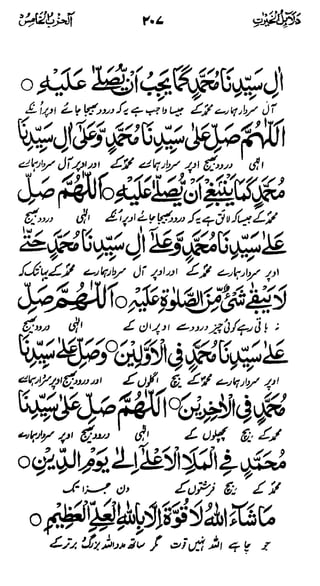 دلائل الخیرات ۲۰۷ الحزب الخامس
اٰلِ سَيِّدِنَا مُحَمَّدٍ كَمَا يَجِبُ اَنْ يُّصَلّٰى عَلَيْهِ ○
آل سردار ہمارے محمدؐ کے جیسا واجب ہے یہ کہ درود بھیجا جائے اوپر اُنکے
اَللّٰهُمَّ صَلِّ عَلٰى سَيِّدِنَا مُحَمَّدٍ وَّعَلٰى اٰلِ سَيِّدِنَا
الٰہی درود بھیج اوپر سردار ہمارے محمدؐ کے اور اوپر آل سردار ہمارے
مُحَمَّدٍ كَمَا يَنْۢبَغِيْ اَنْ يُّصَلّٰى عَلَيْهِ ○ اَللّٰهُمَّ صَلِّ
محمدؐ کے جیسا کہ لائق ہے یہ کہ درود بھیجا جائے اوپر اُنکے الٰہی درود بھیج
عَلٰى سَيِّدِنَا مُحَمَّدٍ وَّعَلٰٓى اٰلِ سَيِّدِنَا مُحَمَّدٍ حَتّٰى
اوپر سردار ہمارے محمدؐ کے اور اوپر آل سردار ہمارے محمدؐ کے یہانتک کہ
لَا يَبْقٰى شَيْءٌ مِّنَ الصَّلٰوةِ عَلَيْهِ ○ اَللّٰهُمَّ صَلِّ
نہ باقی رہے کوئی چیز درود سے اوپر ان کے الٰہی درود بھیج
عَلٰى سَيِّدِنَا مُحَمَّدٍ فِي الْاَوَّلِيْنَ ○ وَصَلِّ عَلٰى سَيِّدِنَا
اوپر سردار ہمارے محمدؐ کے بیچ اگلوں کے اور درود بھیج اوپر سردار ہمارے
مُحَمَّدٍ فِي الْاٰخِرِيْنَ ○ اَللّٰهُمَّ صَلِّ عَلٰى سَيِّدِنَا
محمدؐ کے بیچ پچھلوں کے الٰہی درود بھیج اوپر سردار ہمارے
مُحَمَّدٍ فِي الْمَلَاِ الْاَعْلٰٓى اِلٰى يَوْمِ الدِّيْنِ ○
محمدؐ کے بیچ فرشتوں کے دن جزا تک
مَاشَآءَ اللّٰهُ لَا قُوَّةَ اِلَّا بِاللّٰهِ الْعَلِيِّ الْعَظِيْمِ ○
جو چاہے اللہ نہیں قوت مگر ساتھ مدد اللہ بزرگ برتر کے